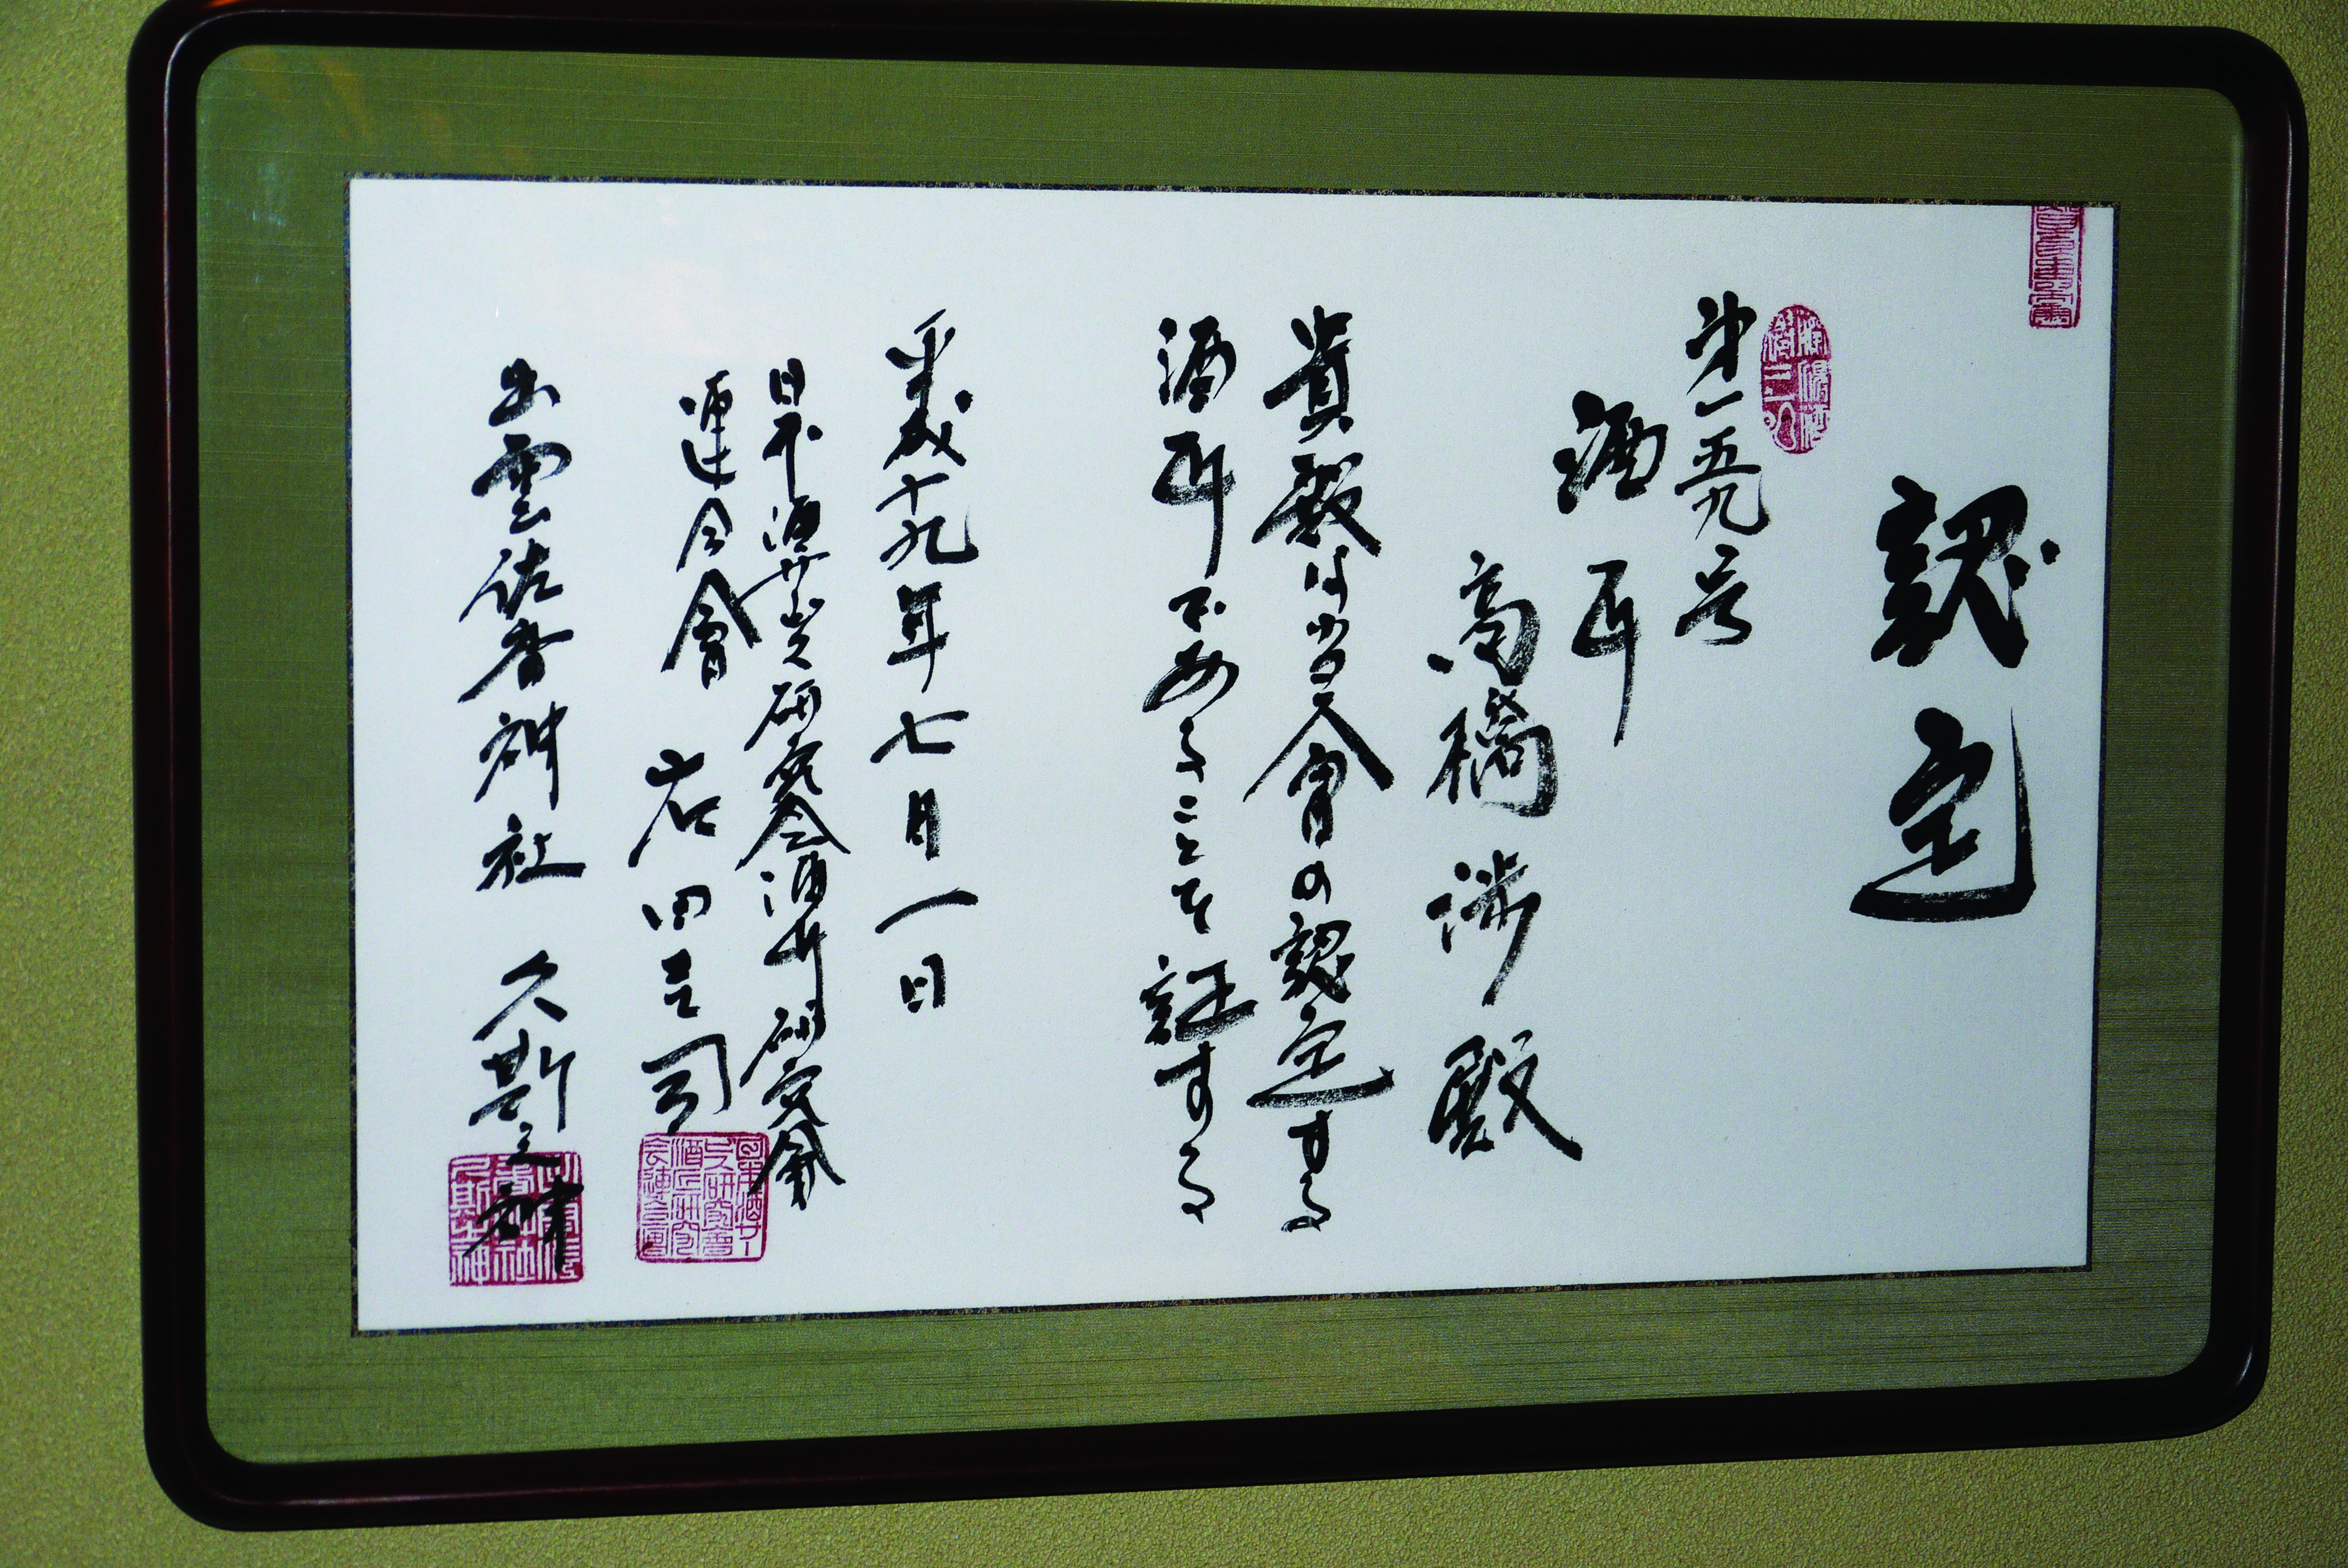 認定
第一五九号
酒匠
高橋渉殿
貴殿は当会會の認定する
酒匠であることを証する
平成十九年七月一日
日本酒サービス研究会酒匠研究會
連合會 右田圭司
出雲佐香神社 久斯之神